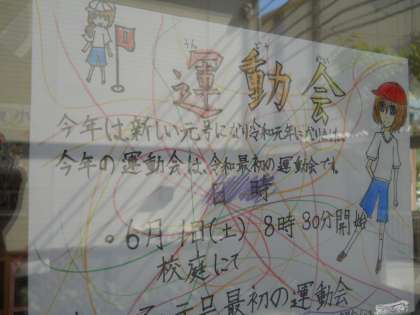 運動会
今年は新しい元号になり令和元年になりました。
今年の運動会は、令和最初の運動会です。
日時
・6月1日(土) 8時30分開始
校庭にて
元号最初の運動会